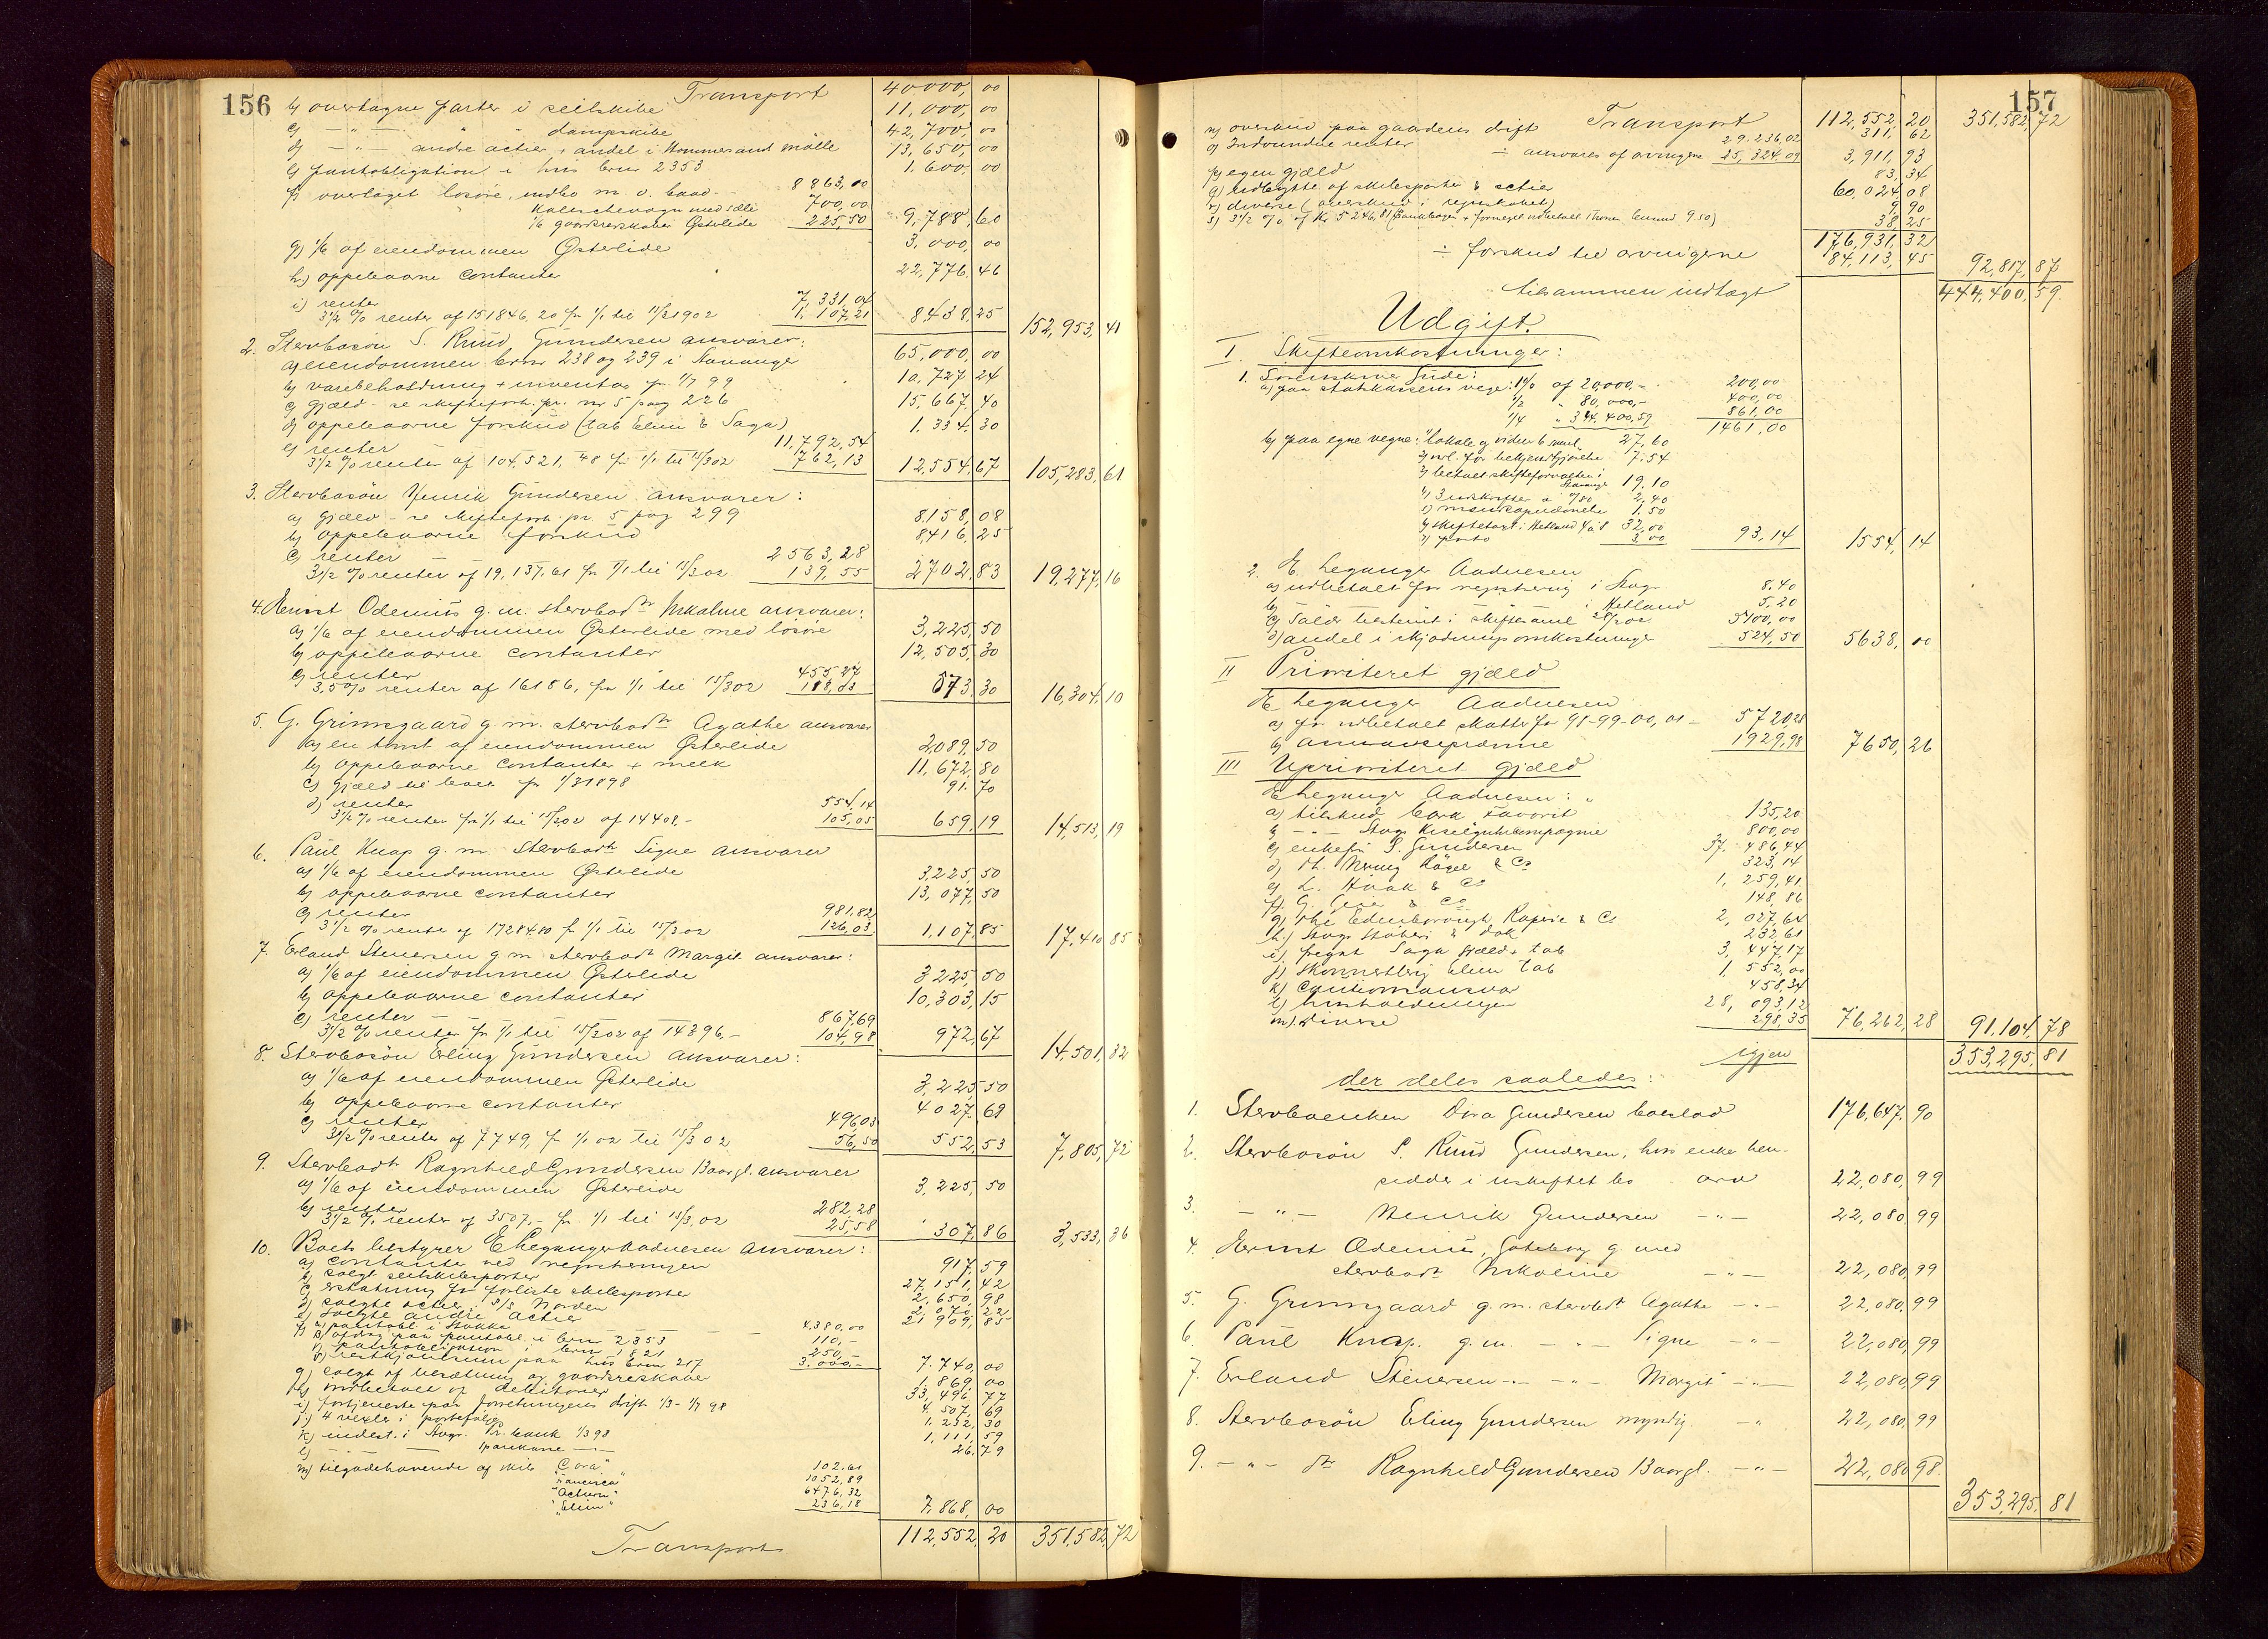 156
Transport 40000, 00
b) overtagne parter i seilskibe 11,000, 00
c) — " — " - dampskibe 42,700, 00
d) — " — andre actier + andel i Hommersand mølle 13,650, 00
e) pantobligation i hus brno 2353 1,600, 00
f) overtaget løsøre, indbo m. v. baad - 8863,00
Kaleschevogn med sæle 700,00
1/6 gaardsredskaber Østerlide 225,50 9,788, 60
g) 1/6 af eiendommen Østerlide 3,000, 00
h) oppebaarne contanter 22,776, 46
i) renter 7,331,04
3 1/2 % renter af 151846,20 fra 1/1 til 15/3 1902 1,107,21 8,438, 25 152,953, 41
2. Stervbosøn S. Ruud Gundersen ansvarer:
a) eiendommen brno 238 og 239 i Stavanger 65,000, 00
b) varebeholdning + inventar pr 1/7 99 10,727 24
c) gjæld - se skifteforh. pr. nr 5 pag 226 15,667, 40
d) oppebaarne forskud (tab Elim & Saga) 1,334, 30
e) renter 11,792,54
3 1/2 % renter af 104,521,48 fra 1/1 til 15/3 02 762,13 12,554, 67 105,283, 61
3. Stervbosøn Henrik Gundersen ansvarer:
a) Gjæld - se skifteforh. pr. 5 pag 299 8,158, 08
b) oppebaarne forskud 8,416, 25
c) renter 2563,28
3 1/2 % renter af 19,137,61 fra 1/1 til 15/3 02 139,55 2702, 83 19,277, 16
4. Ernst Odenius g. m. stervbodtr Nikoline ansvarer:
a) 1/6 af eiendommen Østerlide med løsøre 3,225, 50
b) oppebaarne contanter 12,505, 30
c) renter 455,27
3,5% renter af 16186, fra 1/1 til 15/3 02 118,03 573, 30 16,304, 10
5. G. Grimsgaard g. m. stervbodtr Agathe ansvarer
a) en tomt af eiendommen Østerlide 2,089, 50
b) oppebaarne contanter + melk 11,672, 80
c) gjæld til boet pr 1/3 1898 91, 70
d) renter 554,14
3 1/2 % renter fra 1/1 til 15/3 02 af 14408,- 105,05 659, 19 14,513, 19
6. Paul Knap g. m. stervbodtr Signe ansvarer
a) 1/6 af eiendommen Østerlide 3,225, 50
b) oppebaarne contanter 13,077, 50
c) renter 981,82
3 1/2 % renter af 17284,80 fra 1/1 til 15/3 02 126,03 1,107, 85 17,410 85
7. Erland Stenersen g. m. stervbodtr Margit ansvarer:
a) 1/6 af eiendommen Østerlide 3,225, 50
b) oppebaarne contanter 10,303, 15
c) renter — 867,69
3 1/2 % renter fra 1/1 til 15/3 02 af 14396,- 104,98 972, 67 14,501, 32
8. Stervbosøn Erling Gundersen ansvarer:
a) 1/6 af eiendommen Østerlide 3,225, 50
b) oppebaarne contanter 4027, 69
c) renter 496,03
3 1/2 % renter af 7749, fra 1/1 02 til 15/3 02 56,50 552, 53 7,805, 72
9. Stervbodtr Ragnhild Gundersen 13 aar gl. ansvarer
a) 1/6 af eiendommen Østerlide 3,225, 50
b) renter 282,28
3 1/2 % renter af 3507,- fra 1/1 til 15/3,02 25,58 307, 86 3,533, 36
10. Boets bestyrer E Heganger Aadnesen ansvarer:
a) contanter ved registreringen 917, 59
b) solgt seilskibsparter 27,151, 42
c) erstatning for forliste skibsparter 2,650, 98
d) solgte actier i S/S Norden 2,070, 22
e) solgte andre actier 21909, 85
f) α) pantobl. i Stokka — — 4.380,00
β) afdrag paa pantobl. i brno 2353 110,-
γ) pantobligation i brno 1821 250,-
δ) restkjøbesum paa hus brno 217 3.000,- 7.740, 00
g) solgt af besætning og gaardsredskaber 1.869, 00
h) indbetalt af debitorer 33,496 77
i) fortjeneste paa forretningens drift 1/3 - 1/7 98 4,507, 69
j) 4 vexler i portefølje 1,232, 30
k) indest. i Stvgr. Pr. bank 1/3 98 1,111, 59
l) — " — Sparekasse — " — 26, 79
m) tilgodehavende af skib "Cora" 102,61
"America" 1052,89
"Actiern" 6476,32
"Elim" 236,18 7,868, 00
Transport 112,552, 20 351,582, 72
157
Transport 112,552, 20 351,582, 72
n) overskud paa gaardens drift 311, 62
o) Indvundne renter 29.236,02
÷ ansvares af arvingene 25,324,09 3,911, 93
p) egen gjæld 83, 34
q) udbytte af skibsparter & actier 60,024, 08
r) diverse (overskud i regnskabet) 9 90
s) 3 1/2 % af Kr 5246,81 38, 25
176,931, 32
÷ forskud til arvingerne 84,113, 45 92,817, 87
tilsammen indtægt 444,400, 59
Udgift.
I. Skifteomkostninger:
1. Sorenskriver Gude:
a) paa statskassens vegne: 1% af 20,000,- 200,00
1/2 " 80,000,- 400,00
1/4 " 344,400,59 861,00
1461,00
b) paa egne vegne: 1) lokale og vidner 6 maal 27,60
2) erl. for bekjendtgjørelse 7,54
3) betalt skifteforvalteren i Stavanger 19,10
4) 3 udskrifter à 0/80 2,40
5) 1,50
6) skiftetaxt i Hetland 4 à 8 32,00
7) porto 3,00 93,14 1554, 14
2. E. Heganger Aadnesen
a) udbetalt for registrering i Stvgr 8,40
b) i Hetland 5,20
c) Salær bestemt i skiftesaml 28/2 02 5100,00
d) andel i skjødningsomkostninger 524,50 5638, 00
II Prioriteret gjæld
E Heganger Aadnesen
a) for udbetalt skatter for 98-99-00,01 - 5720,28
b) assuransepræmie 1929,98 7650, 26
III Uprioriteret gjæld
E Heganger Aadnesen:
a) tilskud bark Favorit 135,20
b) — " — Stvgr Kiselguhrkompagnie 800,00
c) enkefru S. Gundersen 37. 486,44
d) Th. & Co 323,14
e) L. Haak & Co 1, 259,41
f) G. & Co 148,86
g) The Edenborough Roperie & Co 2, 027,64
h) Stvgr Støberi & Dok 232,61
i) fregat Saga gjæld + tab 3, 447,17
j) skonnertbrig Elim tab 1, 552,00
k) Cautionsansvar 458,34
l) husholdningen 28, 093,12
m) Diverse 298,35 76,262, 28 91,104, 78
igjen 353,295, 81
der deles saaledes:
1. Stervboenken Dora Gundersen boeslod 176,647, 90
2. Stervbosøn S. Ruud Gundersen, hvis enke hen-
sidder i uskiftet bo arv 22,080, 99
3. — " — Henrik Gundersen — " — 22,080, 99
4. Ernst Odenius, Gøteborg g. med
stervbodtr Nikoline — " — 22,080, 99
5. G. Grimsgaard g. m. stervbdtr Agathe — " — 22,080, 99
6. Paul Knap. g. m. — " — Signe — " — 22,080, 99
7. Erland Stenersen — " — — " — Margit — " — 22,080, 99
8. Stervbosøn Erling Gundersen myndig. — " — 22,080, 99
9. — " — dtr Ragnhild Gundersen 13 aar gl. — " — 22,080 98.
353,295, 81